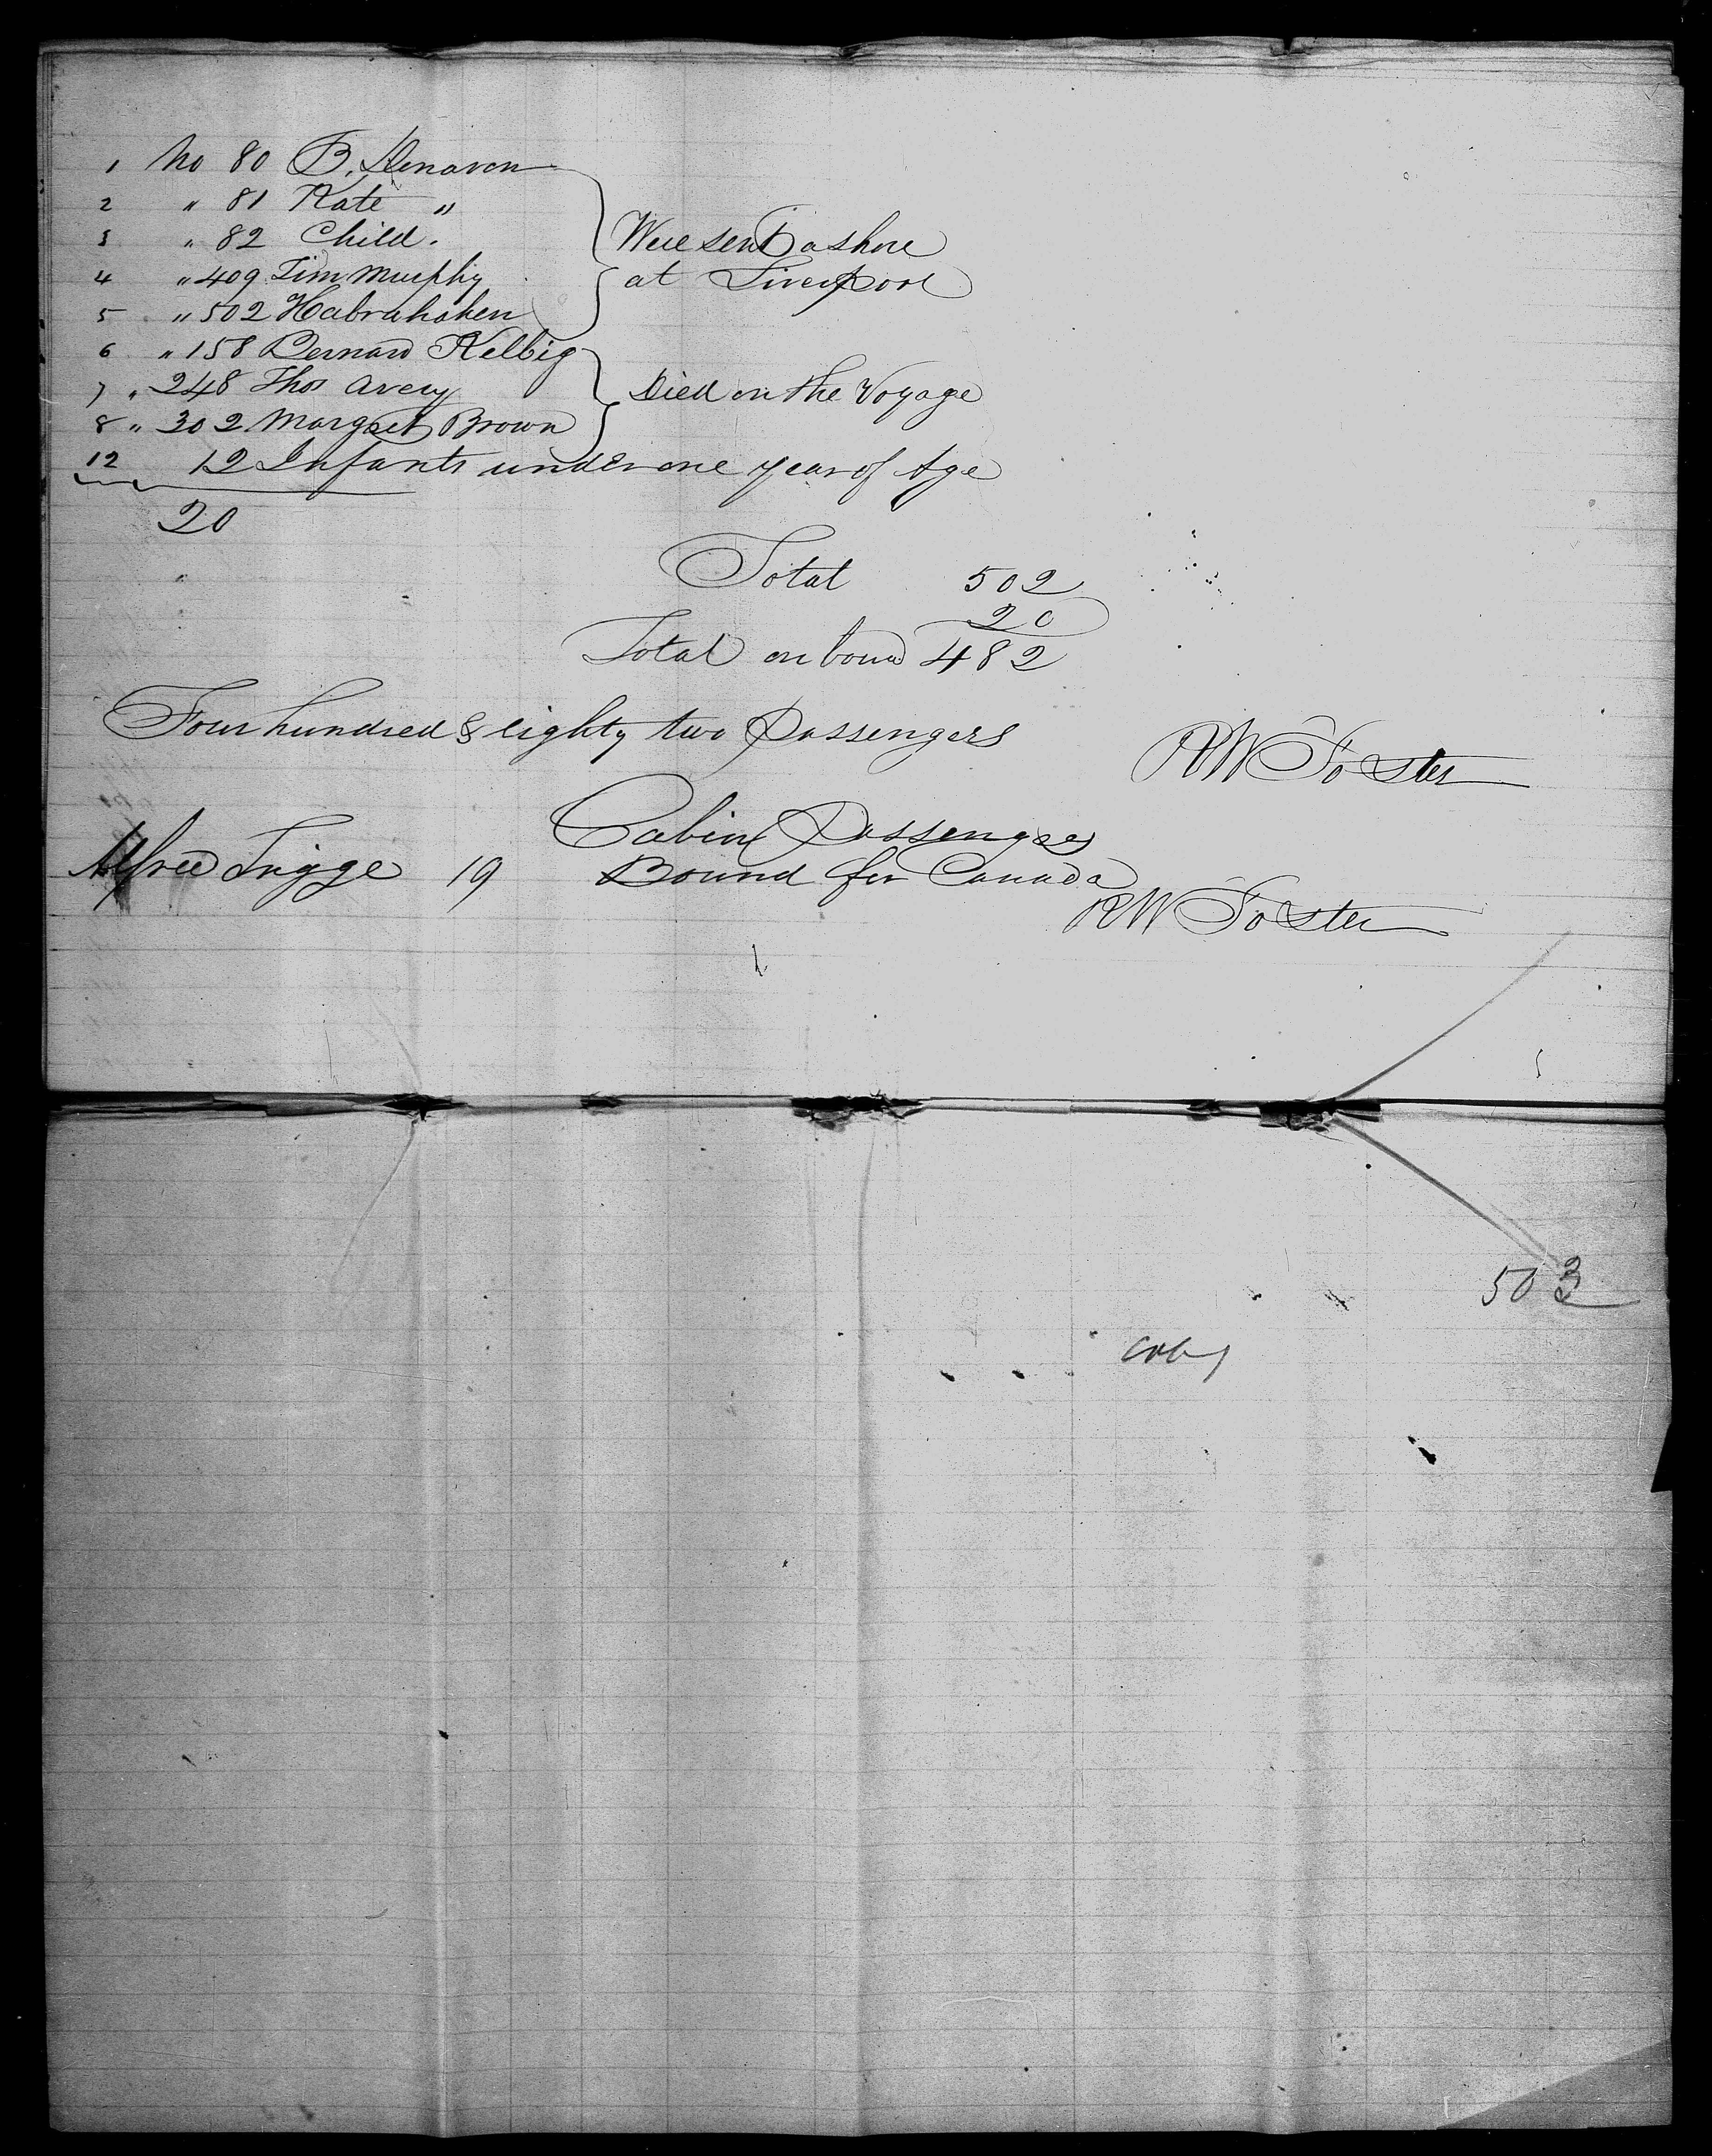 1 No 80 B. Denavon
2 " 81 Kate "
3 " 82 Child.
4 " 409 Tim Murphy
5 " 502 Habrahaken
Were sent ashore
at Liverpool
6 " 158 Bernard Kelbig
7 " 248 Thos Avery
8 " 302 Margret Brown
Died on the Voyage
12 12 Infants under one year of Age
20
Total 502
20
Total on board 482
Four hundred & eighty two Passengers
RW Foster
Cabin Passenger
Alfred Trigge 19 Bound for Canada
RW Foster
503